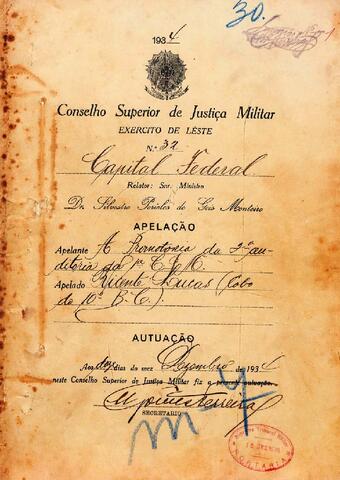 30.
1934
Conselho Superior de Justiça Militar
EXERCITO DE LÉSTE
N.º 32
Capital Federal
Relator: Snr. Ministro
Dr. Silvestre Pericles de Góis Monteiro
APELAÇÃO
Apelante A Promotoria da 3ª au-
ditoria da 1ª C. J. M.
Apelado Lucas (Cabo
do 10º B. C.)
AUTUAÇÃO
Aos dez dias do mez Dezembro de 1934
neste Conselho Superior de Justiça Militar fiz a presente autuação.
SECRETARIO